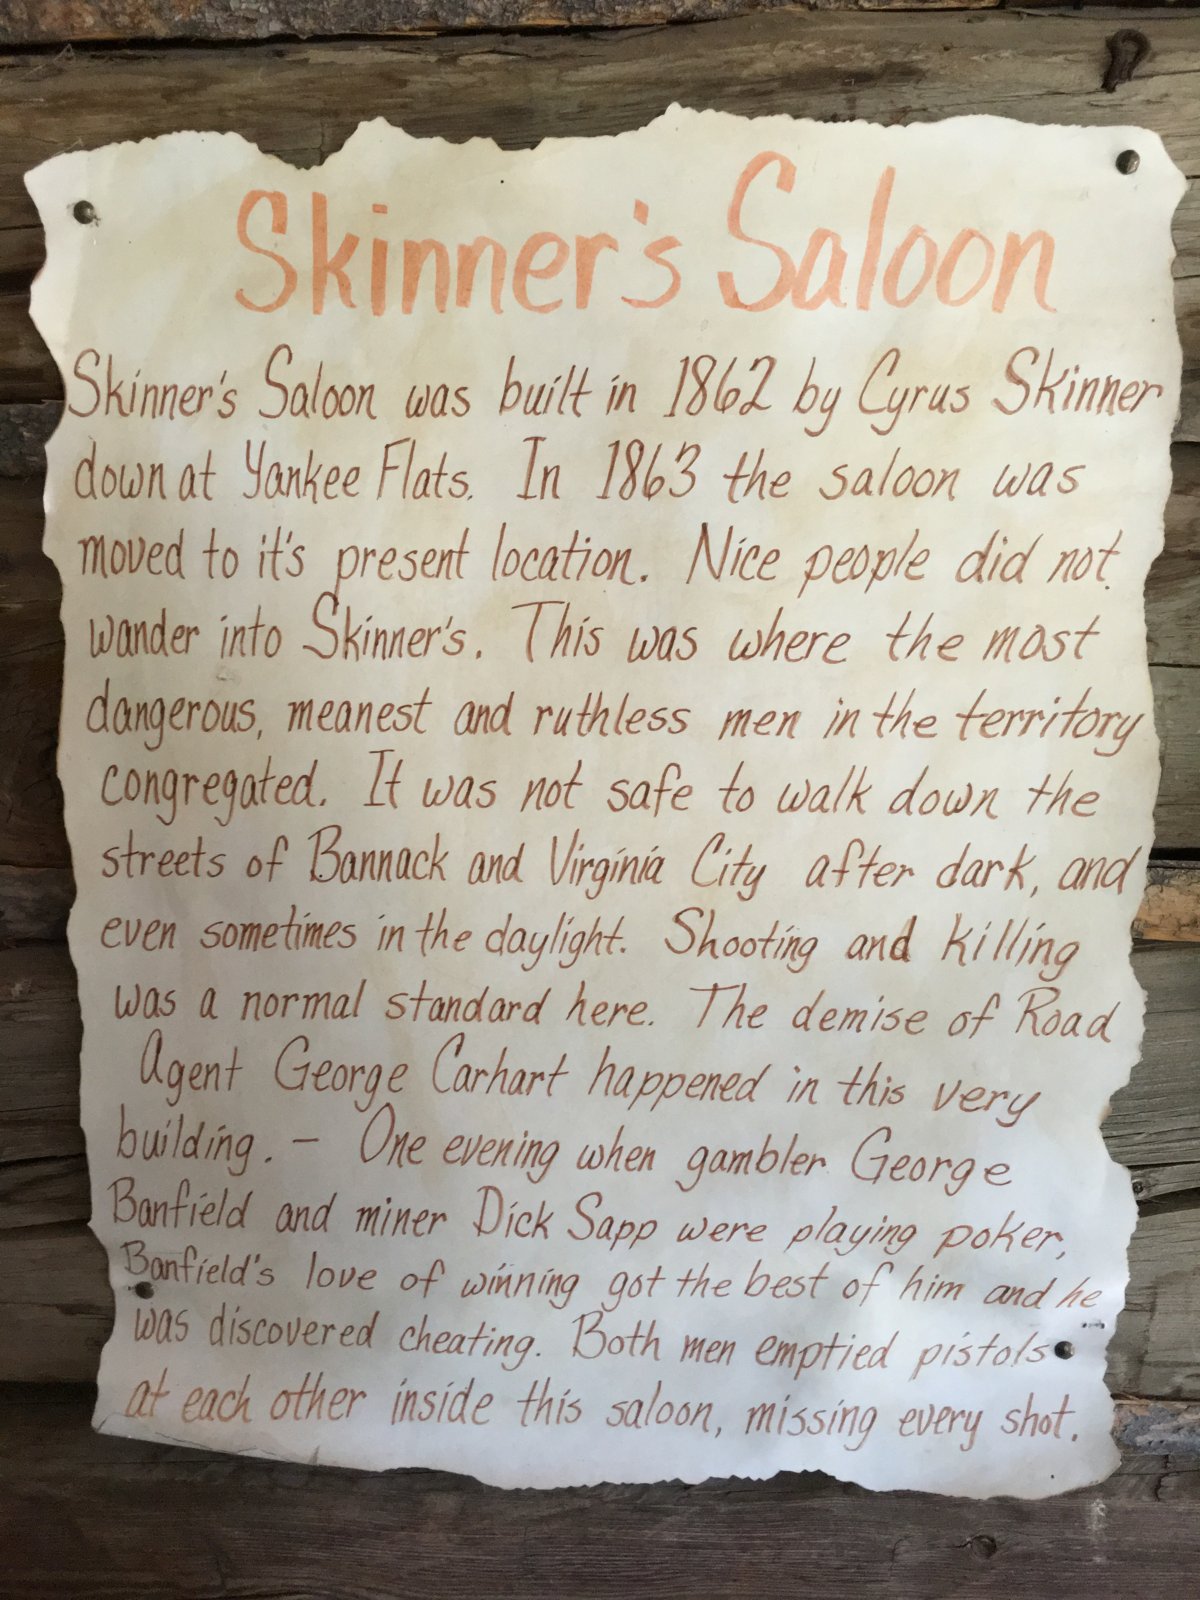 Skinner's Saloon
Skinner's Saloon was built in 1862 by Cyrus Skinner
down at Yankee Flats. In 1863 the saloon was
moved to it's present location. Nice people did not
wander into Skinner's. This was where the most
dangerous, meanest and ruthless men in the territory
congregated. It was not safe to walk down the
streets of Bannack and Virginia City after dark, and
even sometimes in the daylight. Shooting and killing
was a normal standard here. The demise of Road
Agent George Carhart happened in this very
building. — One evening when gambler George
Banfield and miner Dick Sapp were playing poker,
Banfield's love of winning got the best of him and he
was discovered cheating. Both men emptied pistols
at each other inside this saloon, missing every shot.